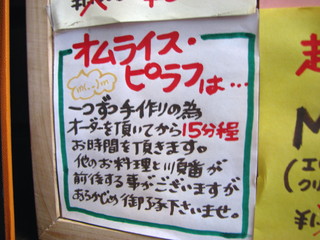 オムライス・
ピラフは…
m(_ _)m
一つずつ手作りの為
オーダーを頂いてから15分程
お時間を頂きます。
他のお料理と順番が
前後する事がございますが
あらかじめ御了承下さいませ。